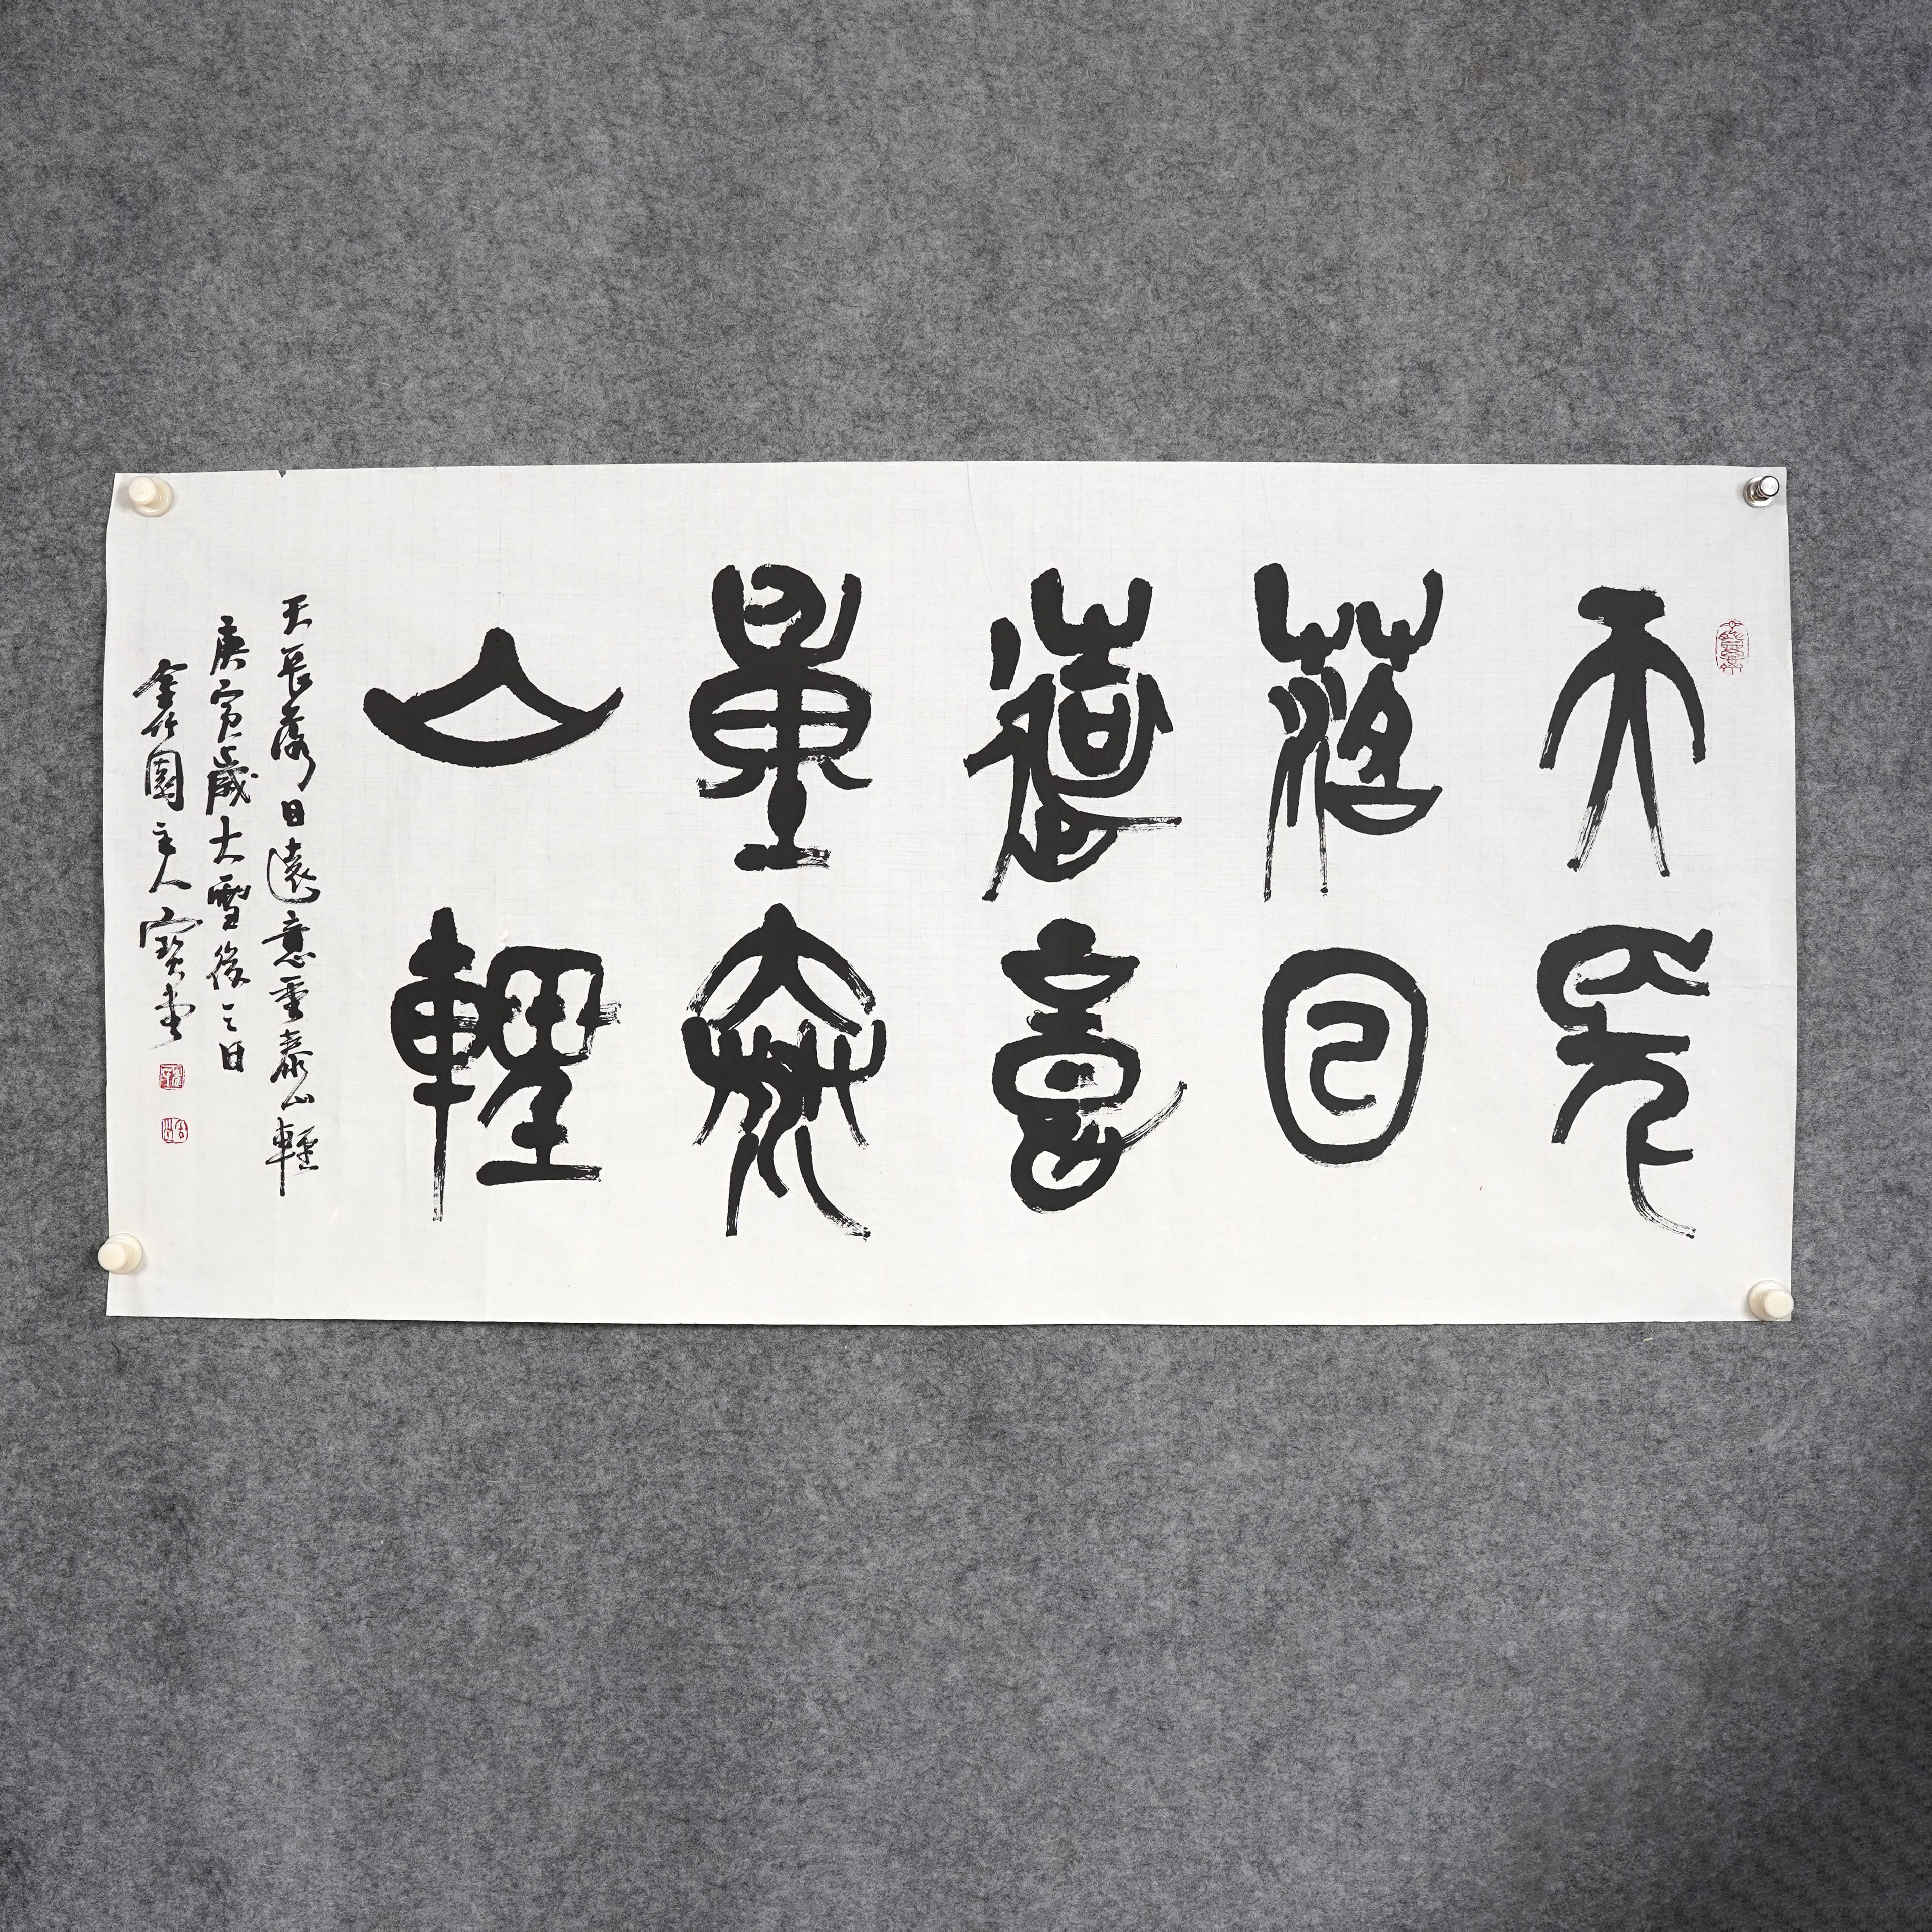 天長
落日
遠意
重泰
山輕
天長落日遠意重泰山輕
庚寅歲大雪後三日
金竹園主人寶堂